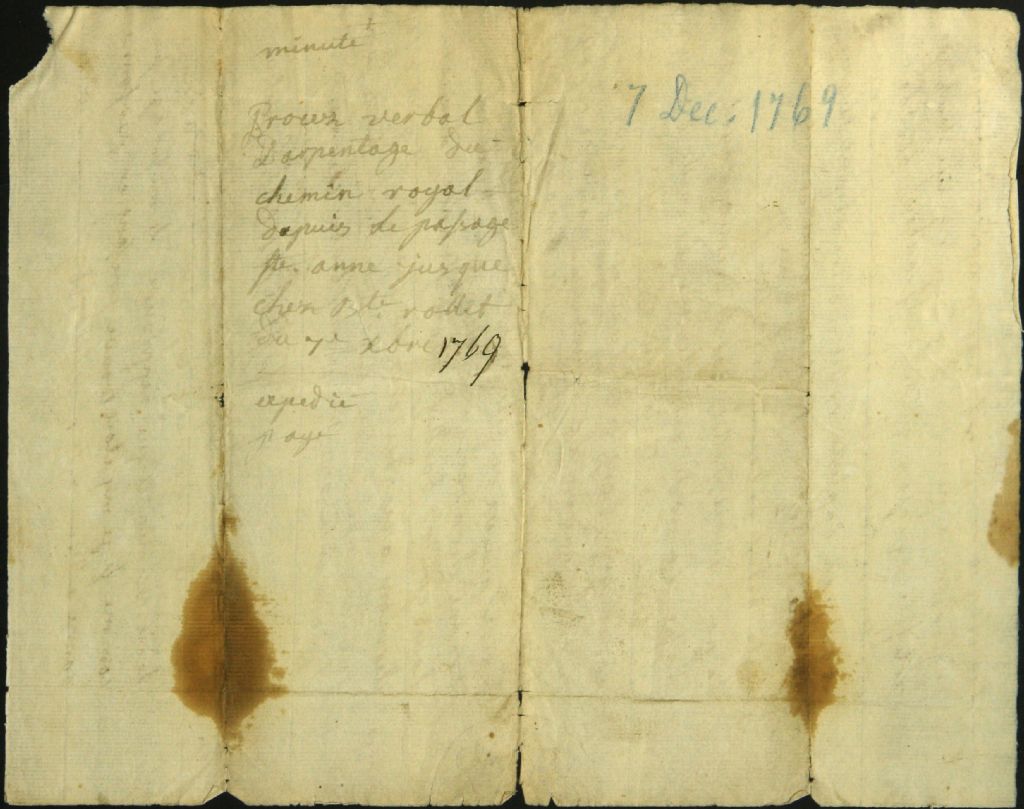 minute
Procez verbal
Darpentage du
chemin royal
depuis le passage
Ste. anne jusque
chez Bte. rodit
du 7e xbre 1769
expedié
payé
7 Dec. 1769